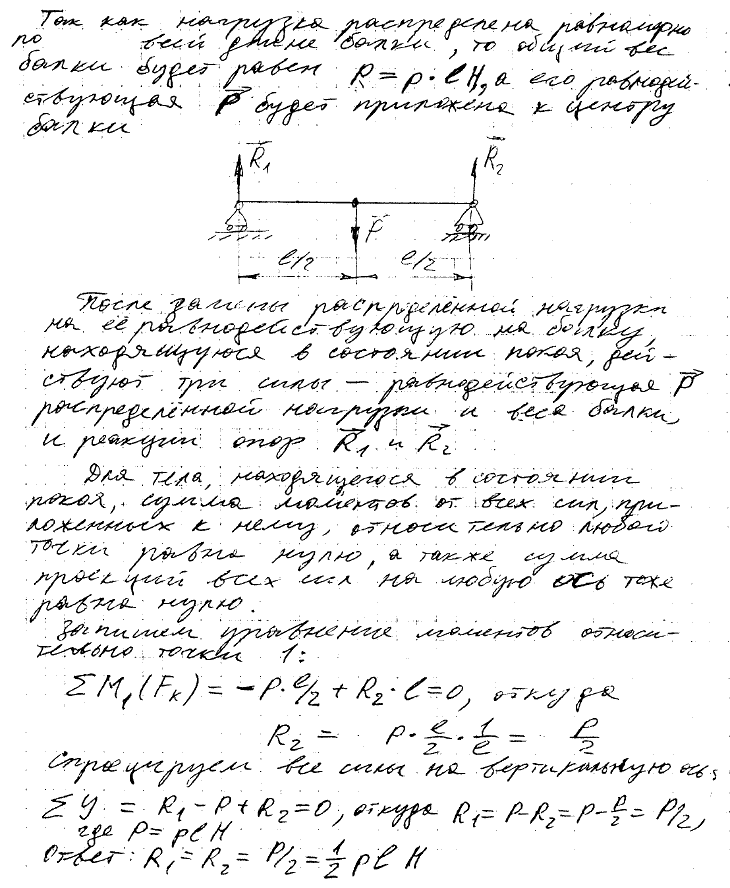 Так как нагрузка распределена равномерно
по всей длине балки, то общий вес
балки будет равен R = p · l H, а его равнодей-
ствующая P⃗ будет приложена к центру
балки
R̅₁ R̅₂
P̅
l/2 l/2
После замены распределённой нагрузки
на её равнодействующую на балку,
находящуюся в состоянии покоя, дей-
ствуют три силы – равнодействующая P⃗
распределённой нагрузки и веса балки,
и реакции опор R⃗₁ и R⃗₂
Для тела, находящегося в состоянии
покоя, сумма моментов от всех сил, при-
ложенных к нему, относительно любой
точки равна нулю, а также сумма
проекций всех сил на любую ось тоже
равна нулю.
Запишем уравнение моментов относи-
тельно точки 1:
ΣM₁(Fₖ) = -P·l/2 + R₂·l = 0, откуда
R₂ = P · l/2 · 1/l = P/2
Спроецируем все силы на вертикальную ось:
ΣY = R₁ - P + R₂ = 0, откуда R₁ = P - R₂ = P - P/2 = P/2,
где P = plH
Ответ: R₁ = R₂ = P/2 = 1/2 pl H